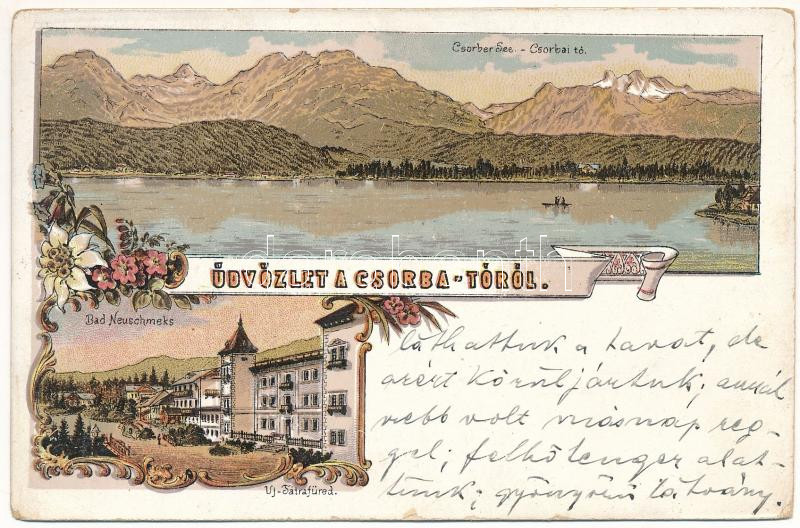 Csorber See. - Csorbai tó.
ÜDVÖZLET A CSORBA-TÓRÓL.
Bad Neuschmeks
Uj-Tátrafüred.
láthattuk a tavat, de
azért körüljártuk; annál
szebb volt másnap reg-
gel; felhőtenger alat-
tunk; gyönyörű látvány.